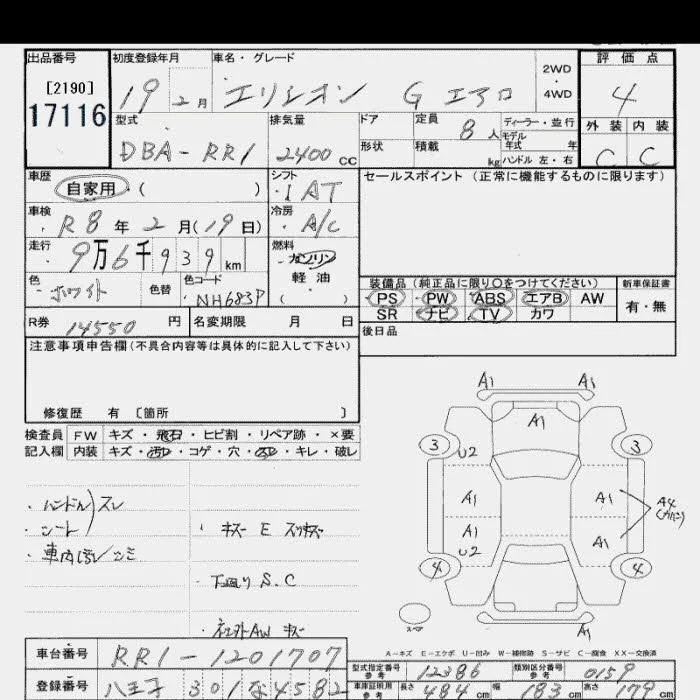 出品番号 初度登録年月 車名・グレード 2WD ・ 4WD 評価点
[2190] 19 2月 エリシオン G エアロ 4
17116 型式 排気量 ドア 定員 8人 ディーラー・並行 外装 内装
DBA-RR1 2400cc 形状 積載 kg モデル年式 年式 ハンドル 左・右 C C
車歴 自家用・( ) シフト ・IAT セールスポイント(正常に機能するものに限ります)
車検 R8年2月(19日) 冷房 A/C
走行 9万6千939km 燃料 ガソリン
色 ホワイト 色替 色コード NH683P 軽油 ( )
装備品(純正品に限り○をつけてください) 新車保証書
PS PW ABS エアB AW 有・無
SR ナビ TV カワ
R券 14550円 名変期限 月 日 後日品
注意事項申告欄(不具合内容等は具体的に記入して下さい)
修復歴 有 〔箇所 〕
検査員 FW キズ・飛石・ヒビ割・リペア跡・×要
記入欄 内装 キズ・汚レ・コゲ・穴・スレ・キレ・破レ
・ハンドル)スレ
・シート
・車内
・キズ E スリキズ
・下廻り S.C
AW キズ
A1 A1
A1
3 3
U2
A1 A1 A4
A1 A1
U2
4 4
A1 A1
A-キズ E-エクボ U-凹み W-補修跡 S-サビ C-腐食 XX-交換済
車台番号 RR1-1201707 型式指定番号 参考 12386 類別区分番号 参考 0159
登録番号 八王子 301 な 4582 車庫証明用 参考 長さ 484cm 幅 183cm 高さ 179cm